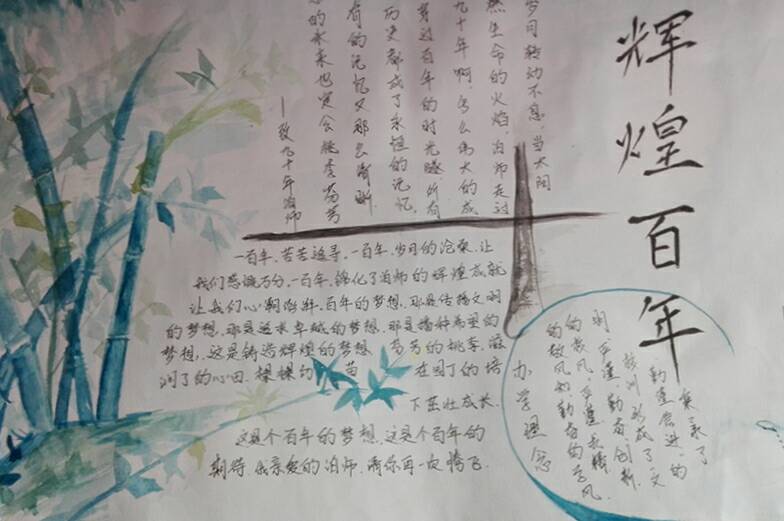 辉煌百年
岁月转动不息,当太阳
燃生命的火焰,泊师走过
九十年啊,多么伟大的成
穿过百年的时光隧,所有
历史都成了永恒的记忆,
有的记忆又那么清晰
的未来也定会桃李芬芳
——致九十年泊师
一百年,苦苦追寻,一百年,岁月的沧桑,让
我们感慨万分,一百年,锦化了泊师的辉煌成就
让我们心潮澎湃,百年的梦想,那是传播文明
的梦想,那是追求卓越的梦想,那是播种希望的
梦想,这是铸造辉煌的梦想 芬芳的桃李,滋
润了的心田,棵棵的 苗 在园丁的培
下茁壮成长.
这是个百年的梦想,这是个百年的
期待,我亲爱的泊师,愿你再一次腾飞.
秉承了
勤奋奋进,的
校训形成了"文
明严谨,勤奋创新
的校风,严谨求精
的教风和勤奋的学风.
办学理念